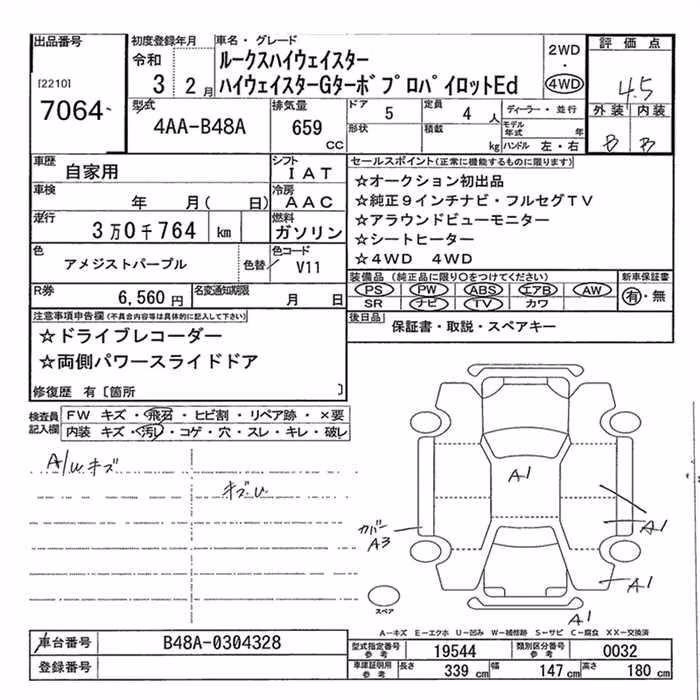 出品番号
[2210]
7064
初度登録年月
令和
3 2月
車名・グレード
ルークスハイウェイスター
ハイウェイスターGターボプロパイロットEd
2WD
・
4WD
評価点
4.5
外装 内装
B B
型式
4AA-B48A
排気量
659
CC
ドア 5
定員 4 人
形状
積載 kg
ディーラー・並行
モデル年式 年
ハンドル 左・右
車歴 自家用
シフト IAT
車検 年 月( 日)
冷房 AAC
走行 3万0千764 km
燃料 ガソリン
色 アメジストパープル 色替/
色コード V11
R券 6,560円
名変通知期限 月 日
セールスポイント(正常に機能するものに限ります)
☆オークション初出品
☆純正9インチナビ・フルセグTV
☆アラウンドビューモニター
☆シートヒーター
☆4WD 4WD
装備品(純正品に限り○をつけてください)
PS PW ABS エアB AW
SR ナビ TV カワ
新車保証書
有・無
後日品 保証書・取説・スペアキー
注意事項申告欄(不具合内容等は具体的に記入して下さい)
☆ドライブレコーダー
☆両側パワースライドドア
修復歴 有〔箇所 〕
検査員記入欄
FW キズ・飛石・ヒビ割・リペア跡・×要
内装 キズ・汚レ・コゲ・穴・スレ・キレ・破レ
A/W キズ
A1
カバー
A3
A1
A1
A1
スペア
A-キズ E-エクボ U-凹み W-補修跡 S-サビ C-腐食 XX-交換済
車台番号 B48A-0304328
登録番号
型式指定番号 参考 19544
類別区分番号 参考 0032
車庫証明用 参考 長さ 339 cm 幅 147 cm 高さ 180 cm